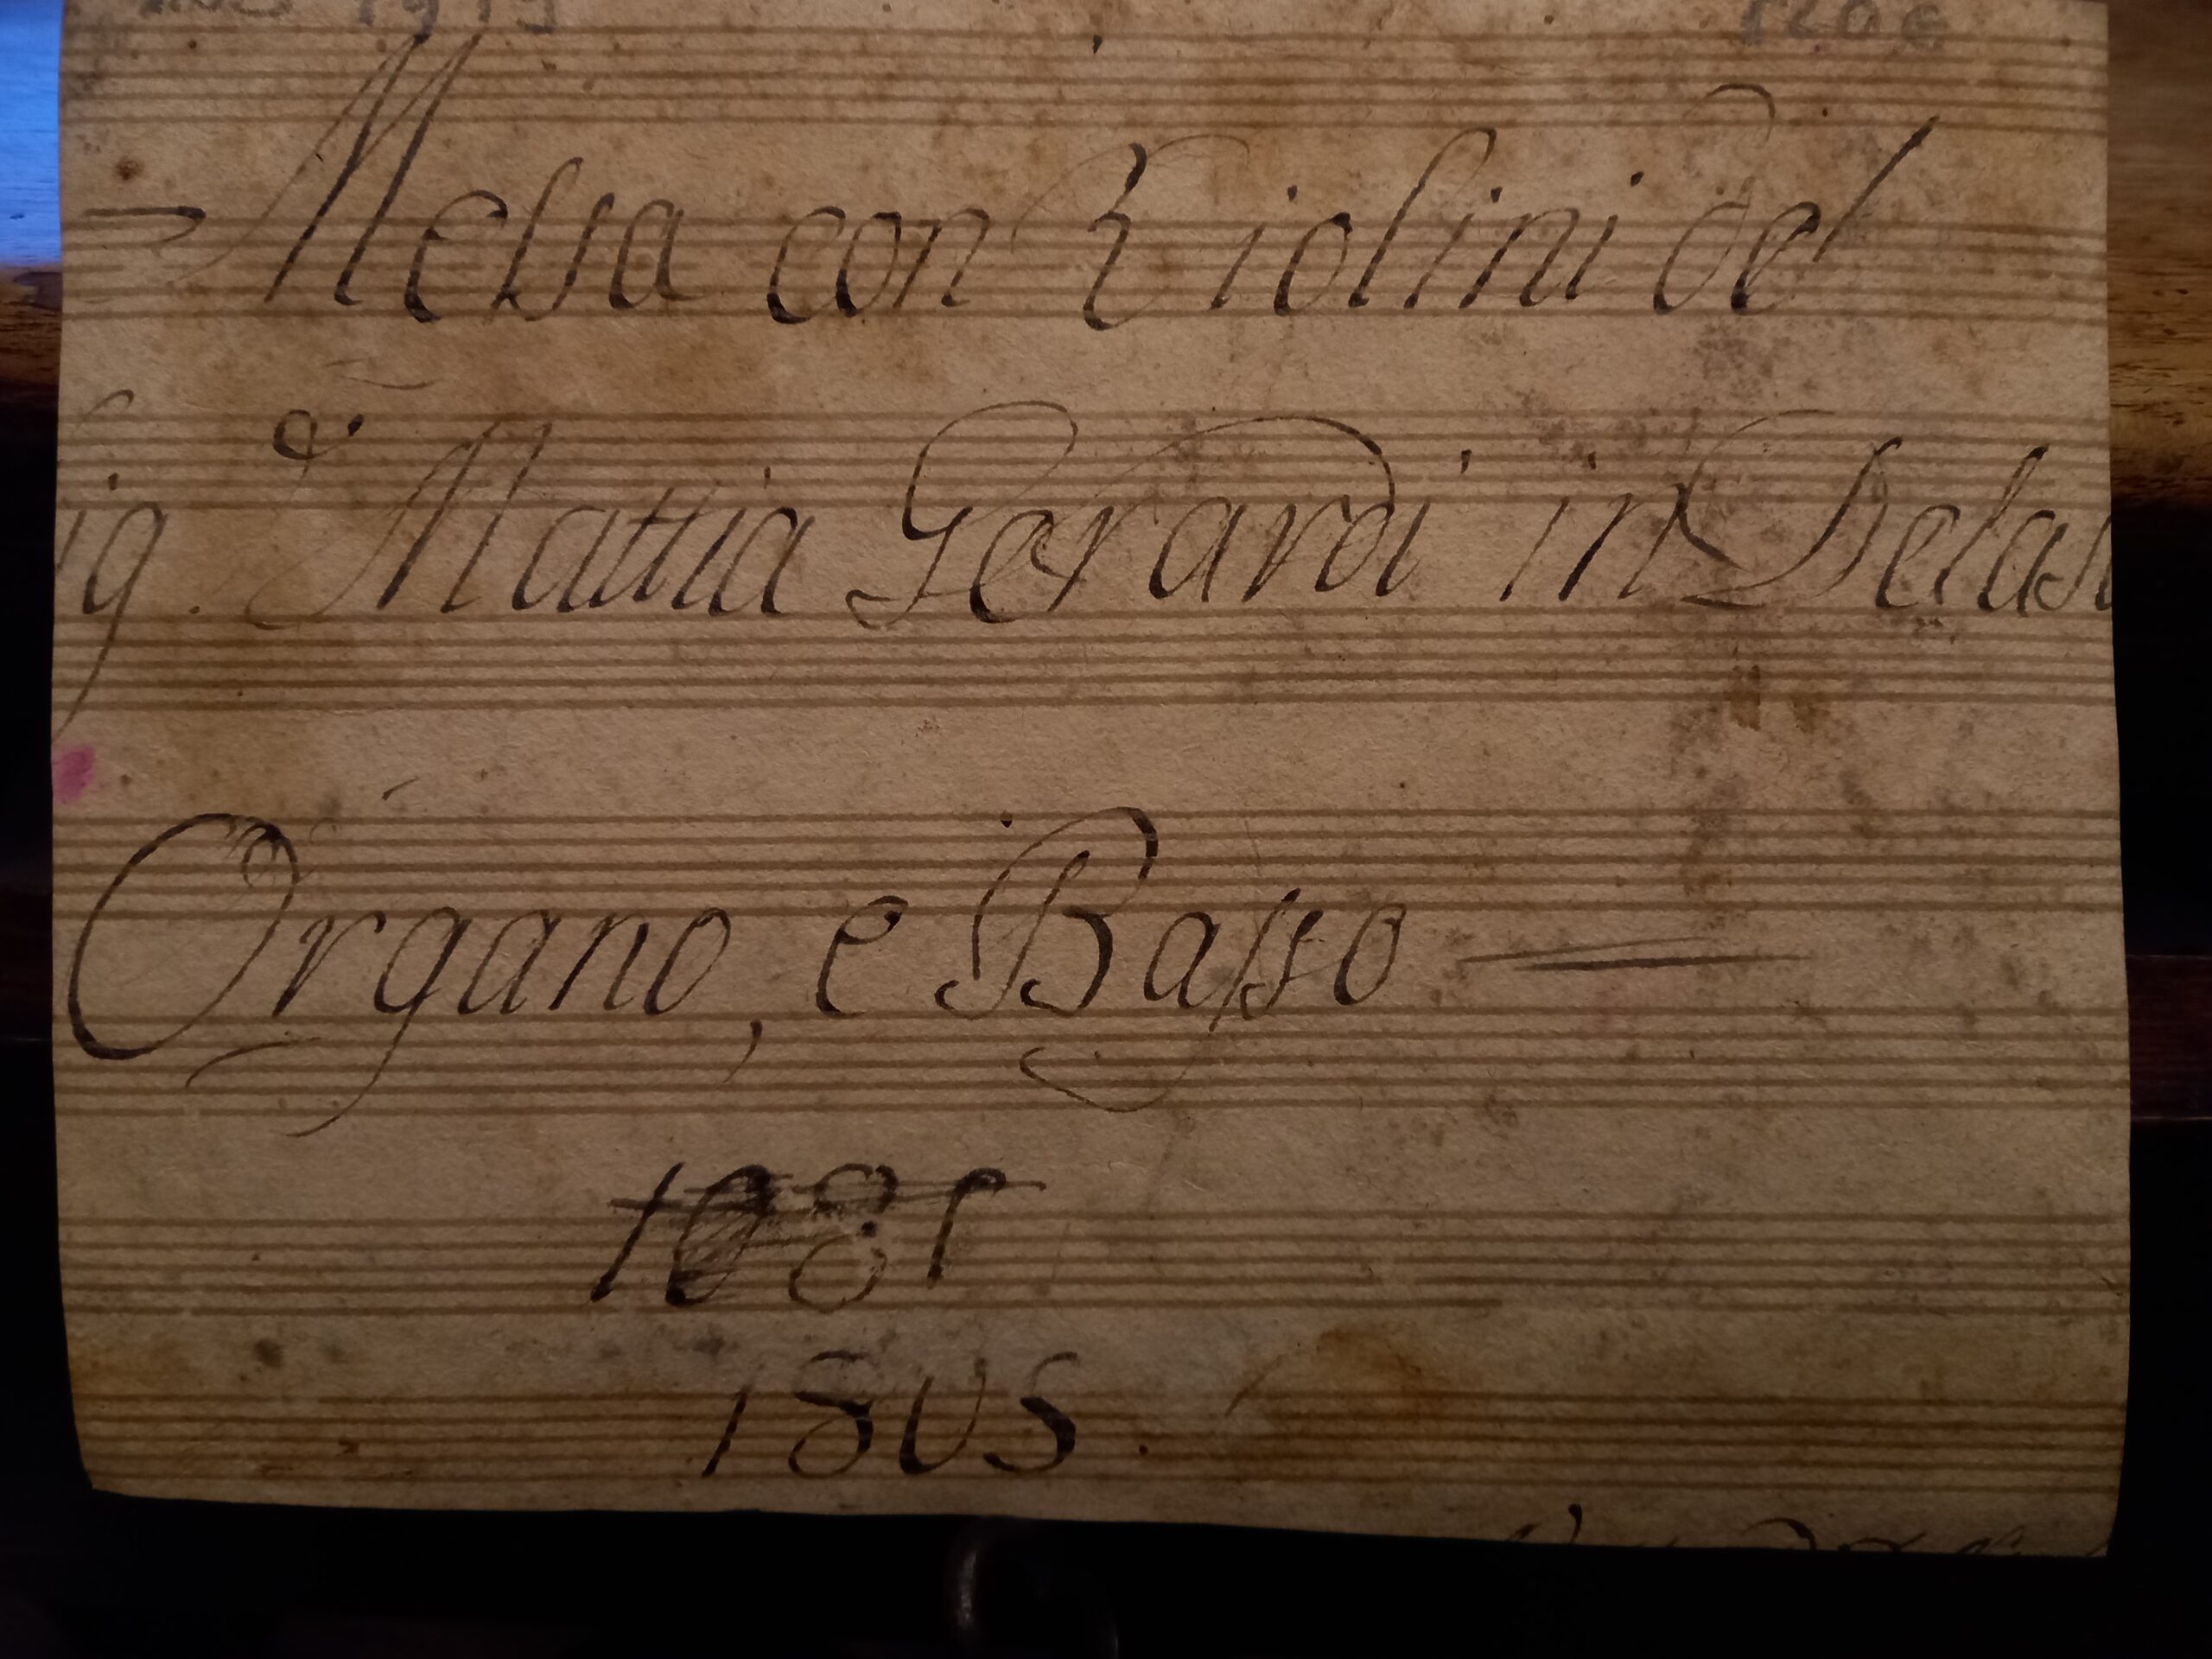 1919
Messa con Violini del
Sig. D. Mattia Gerardi in Delas
Organo, e Basso
1805.